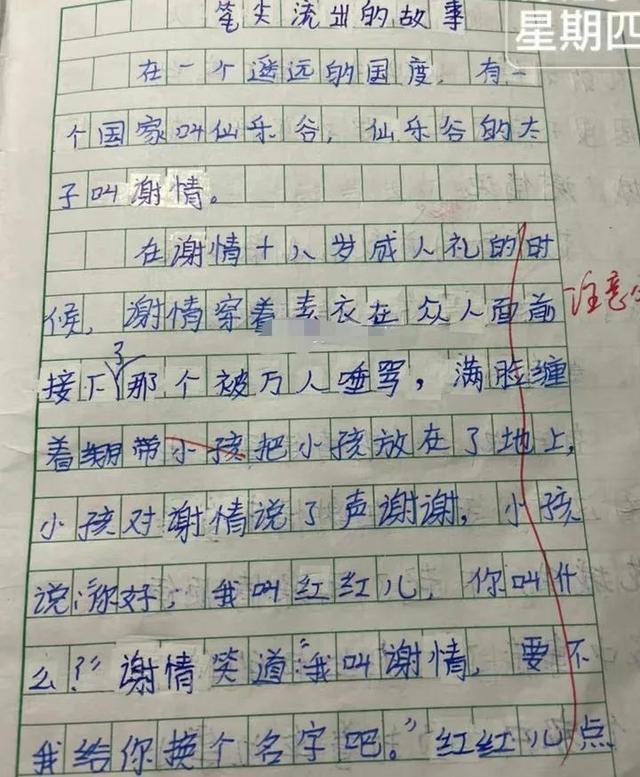 笔尖流出的故事
星期四
在一个遥远的国度,有一
个国家叫仙乐谷,仙乐谷的太
子叫谢情。
在谢情十八岁成人礼的时
候,谢情穿着素衣在众人面前
注意
接下了那个被万人唾骂,满脸缠
着绷带小孩把小孩放在了地上,
小孩对谢情说了声谢谢,小孩
说:"你好,我叫红红儿,你叫什
么?"谢情笑道:"我叫谢情,要不
我给你换个名字吧。"红红儿点